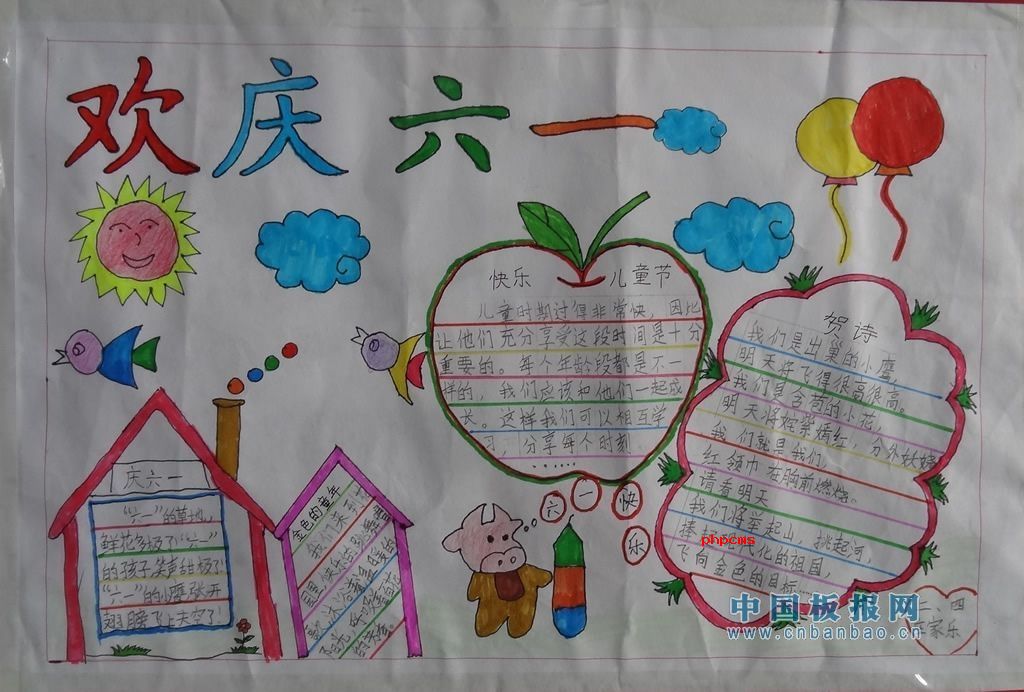 欢庆六一
快乐 儿童节
儿童时期过得非常快，因此
让他们充分享受这段时间是十分
重要的。每个年龄段都是不一
样的，我们应该和他们一起成
长。这样我们可以相互学
习，分享每个时刻
……
贺诗
我们是出巢的小鹰，
明天将飞得很高很高。
我们是含苞的小花，
明天将姹紫嫣红，分外妖娆
我们就是我们，
红领巾在胸前燃烧。
请看明天
我们将举起山，挑起河，
代化的祖国，
飞向金色的目标……
庆六一
“六一”的草地，
鲜花多极了“六一”
的孩子，笑声甜极了
“六一”的小鹰，张开
翅膀飞上天空了
金色的童年
六一快乐
phpcms
二、四
家乐
中国板报网
www.cnbanbao.cn